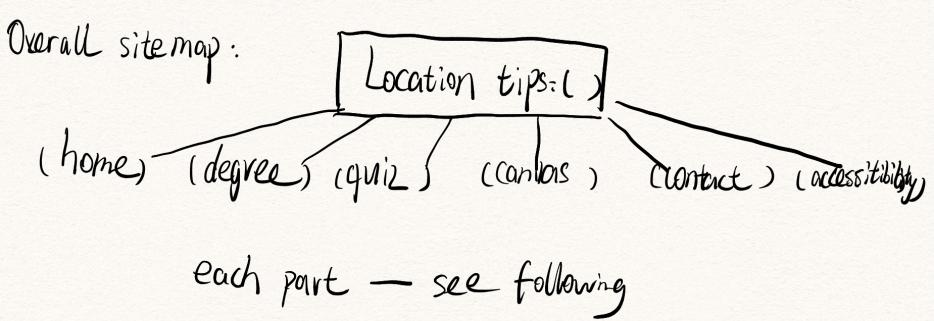 Overall sitemap:
Location tips:( )
(home) (degree) (quiz) (canvas) (contact) (accessitibility)
each part — see following